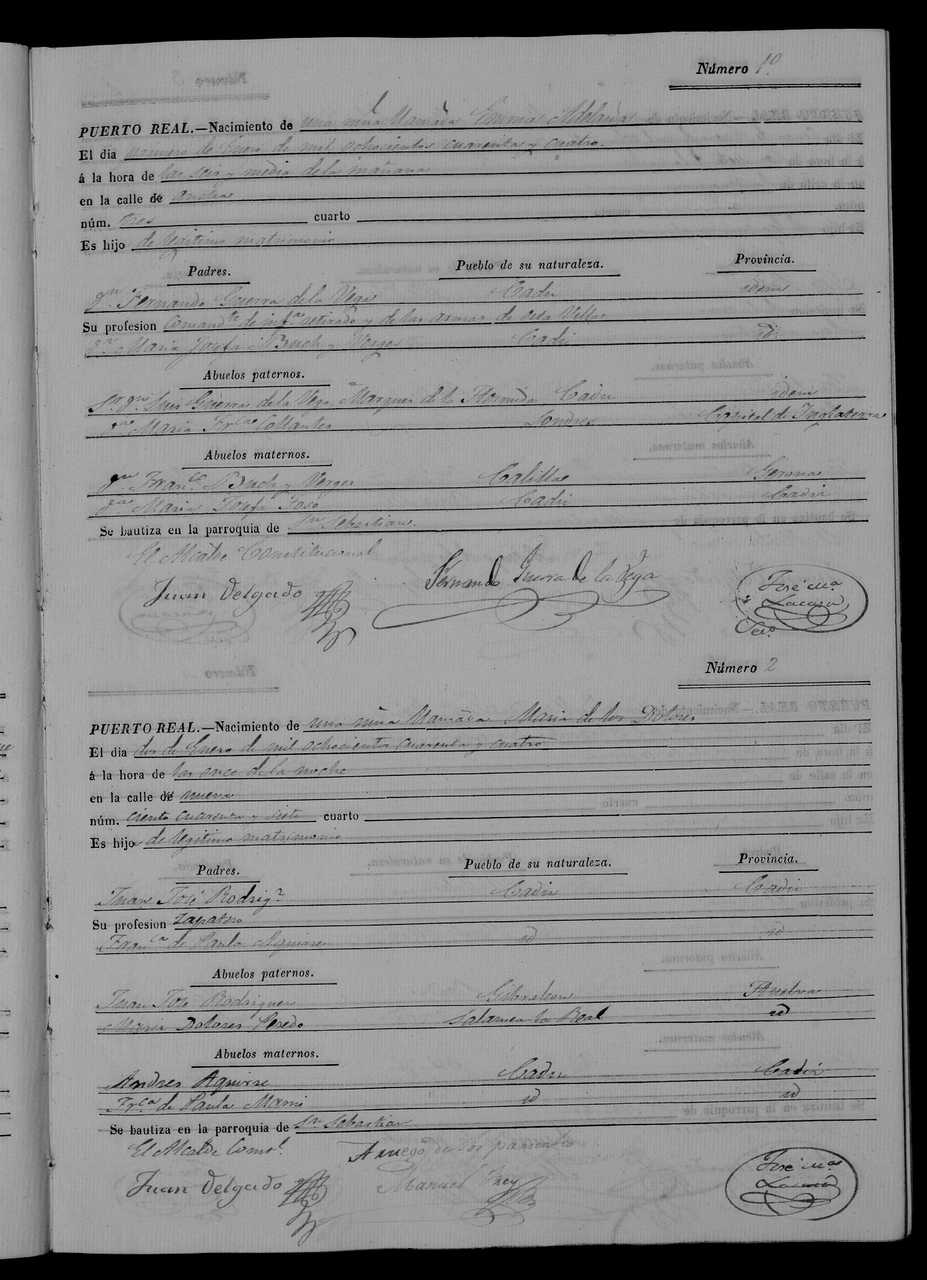 Número 1º
PUERTO REAL.—Nacimiento de una niña llamada Emma Adelaida
El dia primero de Enero de mil ochocientos cuarenta y cuatro
á la hora de las seis y media de la mañana
en la calle de ancha
núm. tres cuarto
Es hijo de legitimo matrimonio
Padres. Pueblo de su naturaleza. Provincia.
Dn Fernando Guerra de la Vega Cadiz idem
Su profesion Comandte de infa retirado y de las armas de
Da Maria Josefa Buch y Verges Cadiz id
Abuelos paternos.
Sr Dn Luis Guerra de la Vega Marques de la Hormida Cadiz idem
Da Maria Frca Collantes Londres Capital de Inglaterra
Abuelos maternos.
Dn Franco Buch y Verges Gerona
Da Maria Josefa Cadiz Cadiz
Se bautiza en la parroquia de Sn Sebastian
El Alcalde Constitucional
Juan Delgado Fernando Guerra de la Vega José Ma
Lacasa
Seco
Número 2
PUERTO REAL.—Nacimiento de una niña llamada Maria de los Dolores
El dia dos de Enero de mil ochocientos cuarenta y cuatro
á la hora de las once de la noche
en la calle de nueva
núm. ciento cuarenta y siete cuarto
Es hijo de legitimo matrimonio
Padres. Pueblo de su naturaleza. Provincia.
Juan José Rodrigz Cadiz Cadiz
Su profesion Zapatero
Franca de Paula Aguirre id id
Abuelos paternos.
Juan José Rodriguez Gibraleon Huelva
Maria Dolores Zalamea la Real id
Abuelos maternos.
Andres Aguirre Cadiz Cadiz
Frca de Paula id id
Se bautiza en la parroquia de Sn Sebastian
El Alcalde Consl. A ruego de los parientes
Juan Delgado Manuel Rey José Ma
Lacasa